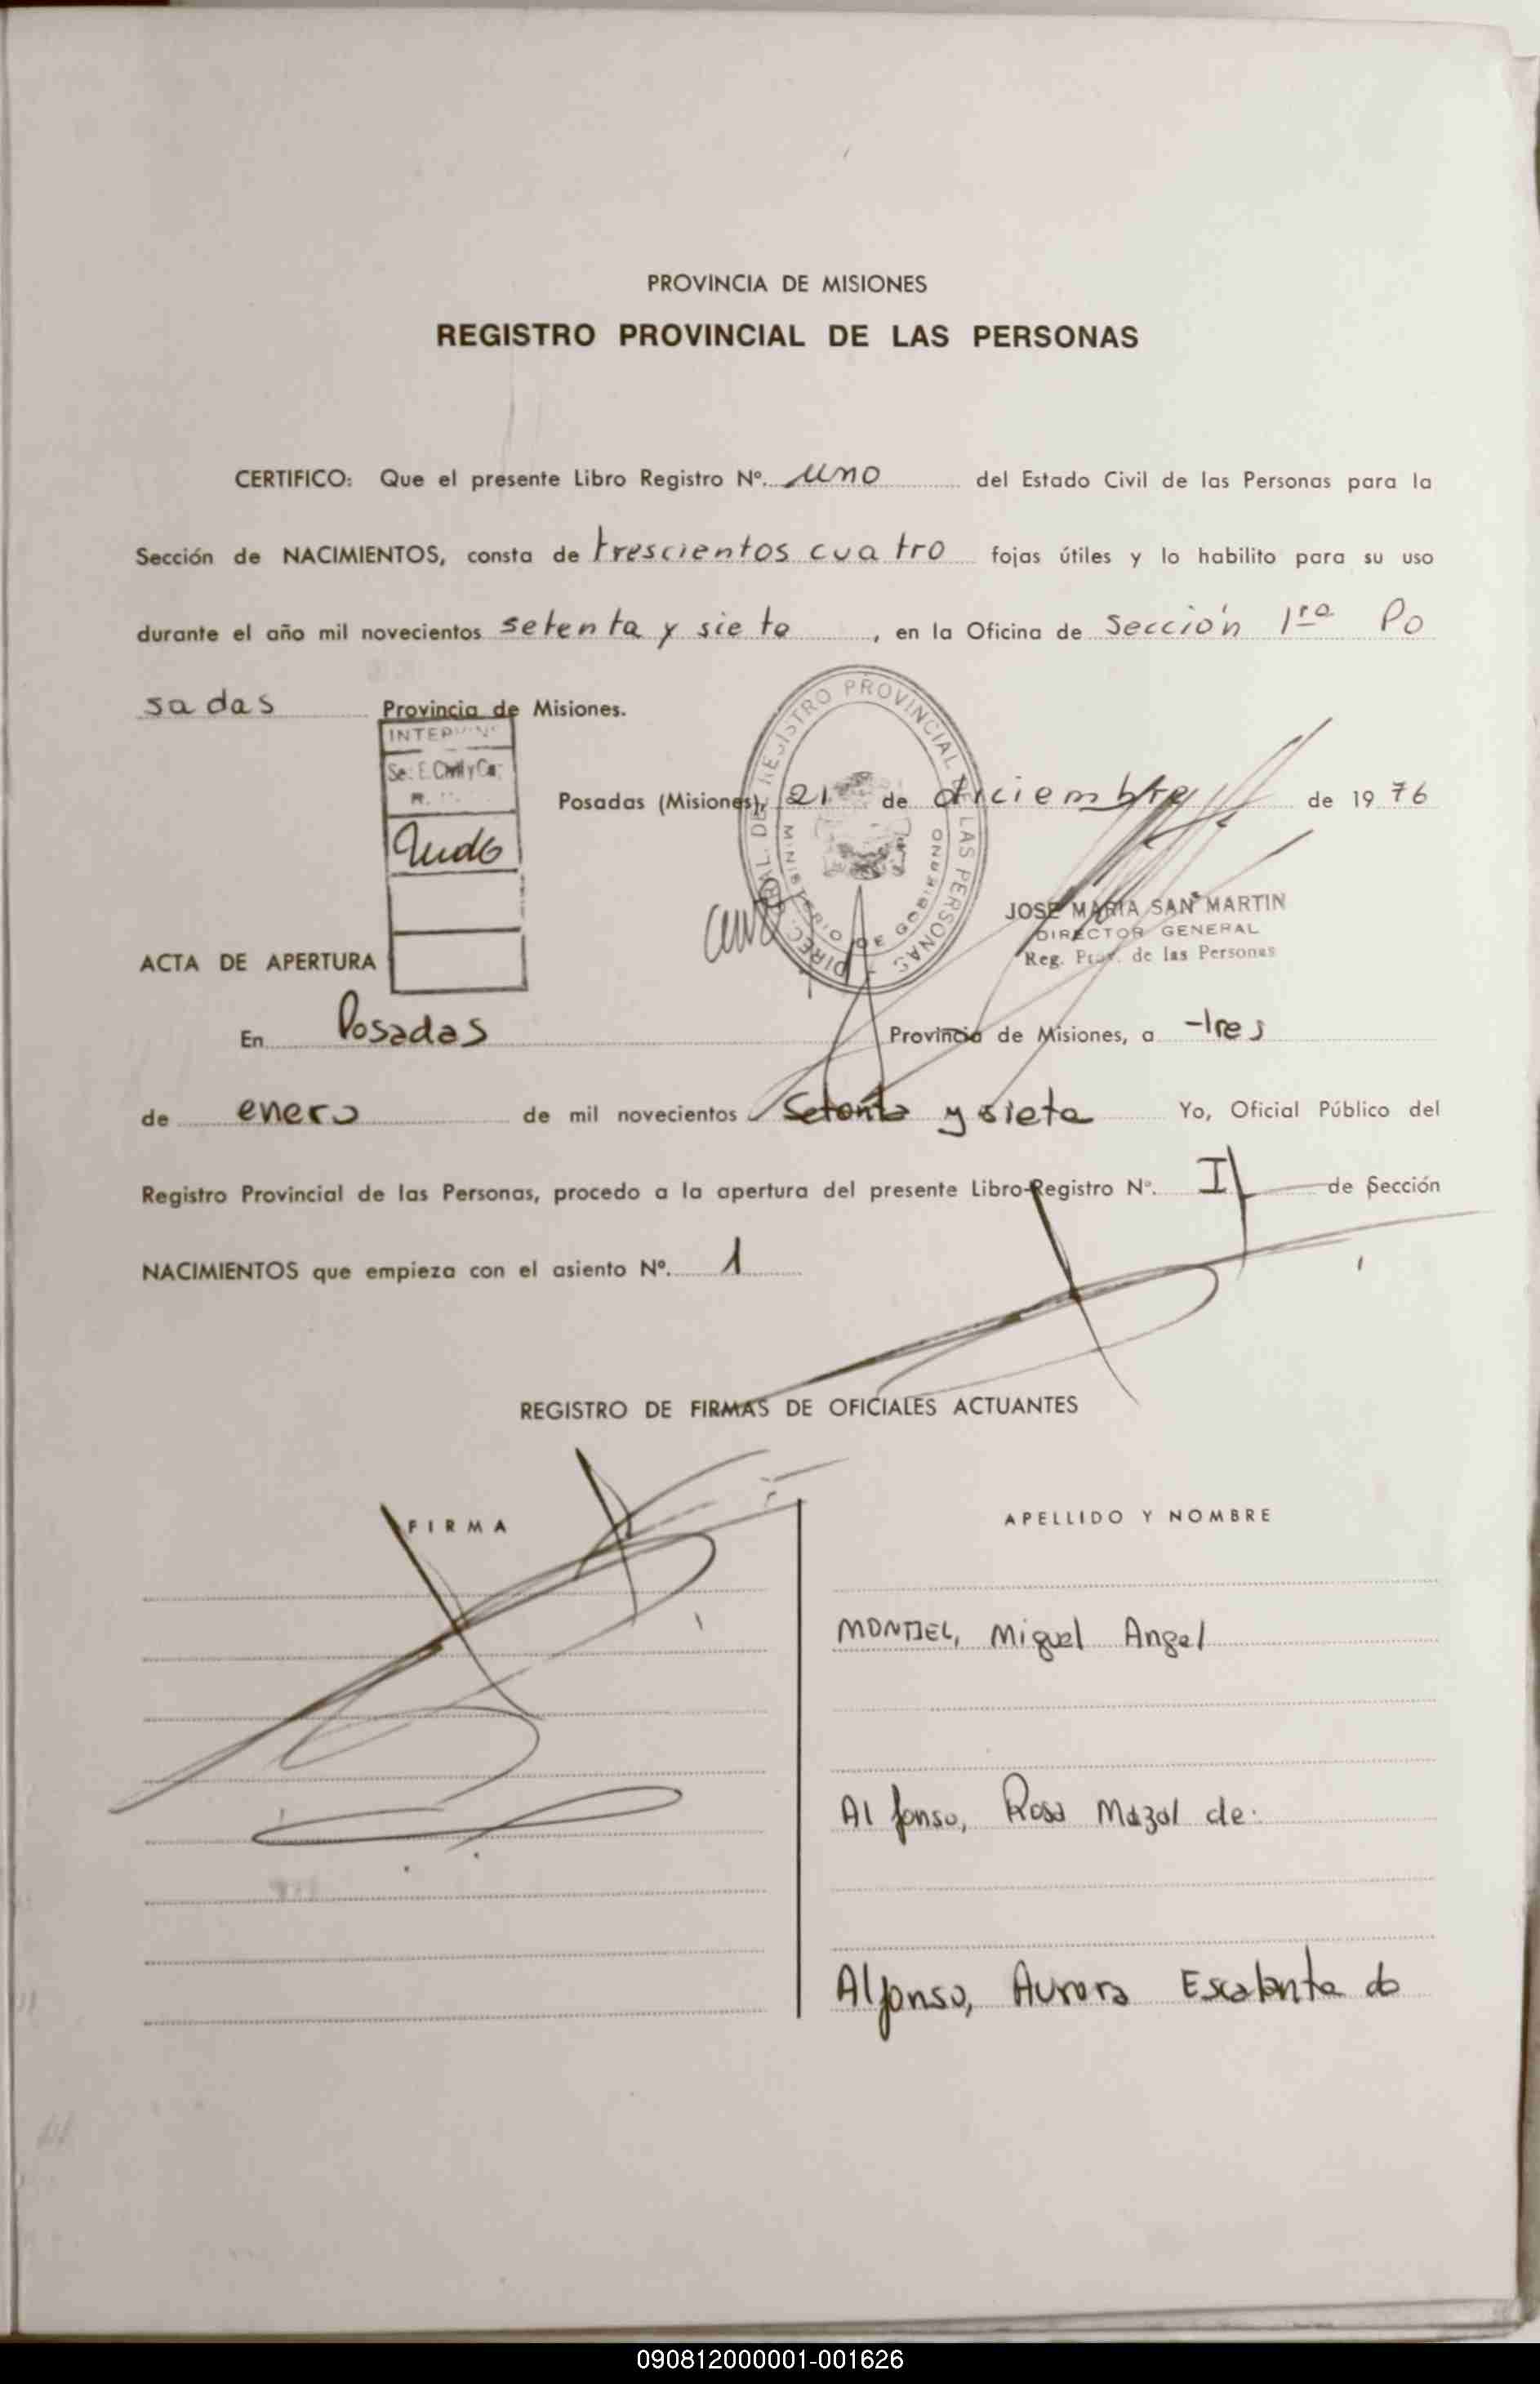 PROVINCIA DE MISIONES
REGISTRO PROVINCIAL DE LAS PERSONAS
CERTIFICO: Que el presente Libro Registro Nº. uno del Estado Civil de las Personas para la
Sección de NACIMIENTOS, consta de trescientos cuatro fojas útiles y lo habilito para su uso
durante el año mil novecientos setenta y siete, en la Oficina de Sección 1ra Po
sadas Provincia de Misiones.
Se: E. Civil y Ca:
DIREC. GRAL. DEL REJISTRO PROVINCIAL DE LAS PERSONAS
MINISTERIO DE GOBIERNO
Posadas (Misiones), 21 de diciembre de 1976
JOSE MARIA SAN MARTIN
DIRECTOR GENERAL
Reg. Prov. de las Personas
ACTA DE APERTURA
En Posadas Provincia de Misiones, a tres
de enero de mil novecientos Setenta y siete Yo, Oficial Público del
Registro Provincial de las Personas, procedo a la apertura del presente Libro-Registro Nº. I de Sección
NACIMIENTOS que empieza con el asiento Nº. 1
REGISTRO DE FIRMAS DE OFICIALES ACTUANTES
FIRMA
APELLIDO Y NOMBRE
MONTIEL, Miguel Angel
Alfonso, Rosa Mazal de:
Alfonso, Aurora Escalante de
090812000001-001626